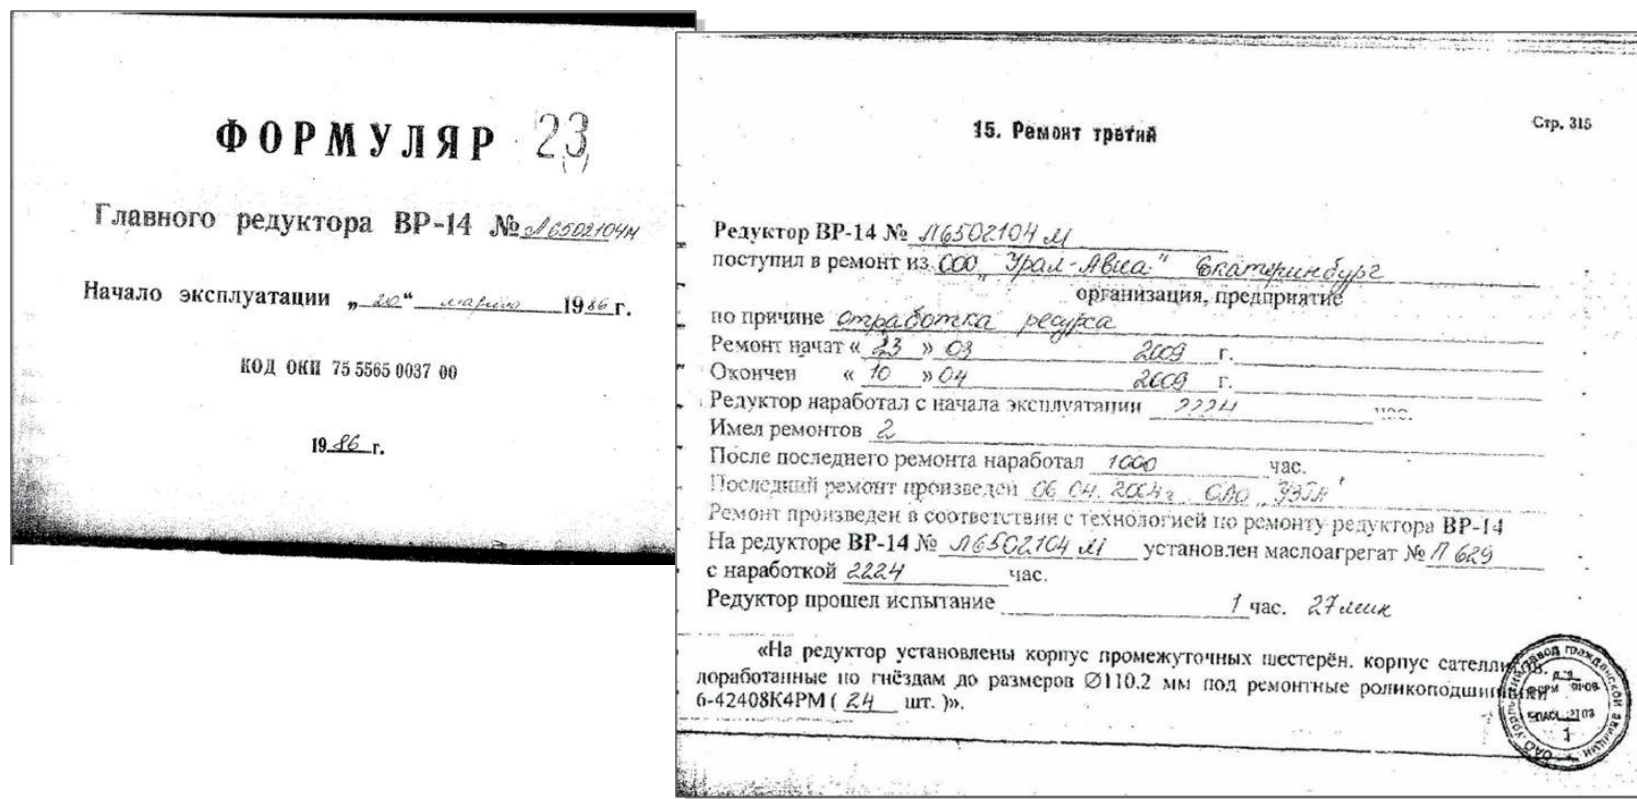 ФОРМУЛЯР 23
Главного редуктора ВР-14 № Л6502104М
Начало эксплуатации „20“ марта 1986 г.
КОД ОКП 75 5565 0037 00
1986 г.
Стр. 315
15. Ремонт третий
Редуктор ВР-14 № Л6502104М
поступил в ремонт из ООО „Урал-Авиа" Екатеринбург
организация, предприятие
по причине отработка ресурса
Ремонт начат « 23 » 03 2009 г.
Окончен « 10 » 04 2009 г.
Редуктор наработал с начала эксплуатации 2224 час.
Имел ремонтов 2
После последнего ремонта наработал 1000 час.
Последний ремонт произведен 06.04.2004г ОАО „УЗГА"
Ремонт произведен в соответствии с технологией по ремонту редуктора ВР-14
На редукторе ВР-14 № Л6502104М установлен маслоагрегат № Л629
с наработкой 2224 час.
Редуктор прошел испытание 1 час. 27 мин
«На редуктор установлены корпус промежуточных шестерён, корпус сателлитов,
доработанные по гнёздам до размеров Ø110.2 мм под ремонтные роликоподшипники
6-42408К4РМ ( 24 шт. )».
ОАО Уральский завод гражданской авиации